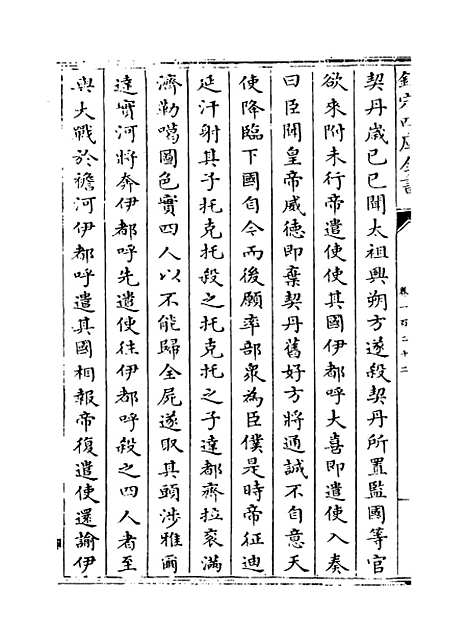 欽定四庫全書
卷一百二十二
契丹歲己巳聞太祖興朔方遂殺契丹所置監國等官
欲來附未行帝遣使使其國伊都呼大喜即遣使入奏
曰臣聞皇帝威德即棄契丹舊好方將通誠不自意天
使降臨下國自今而後願率部衆為臣僕是時帝征迪
延汗射其子托克托殺之托克托之子達都齊拉衮滿
濟勒噶圖色實四人以不能歸全屍遂取其頭涉雅爾
達實河將奔伊都呼先遣使往伊都呼殺之四人者至
與大戰於襜河伊都呼遣其國相報帝復遣使還諭伊